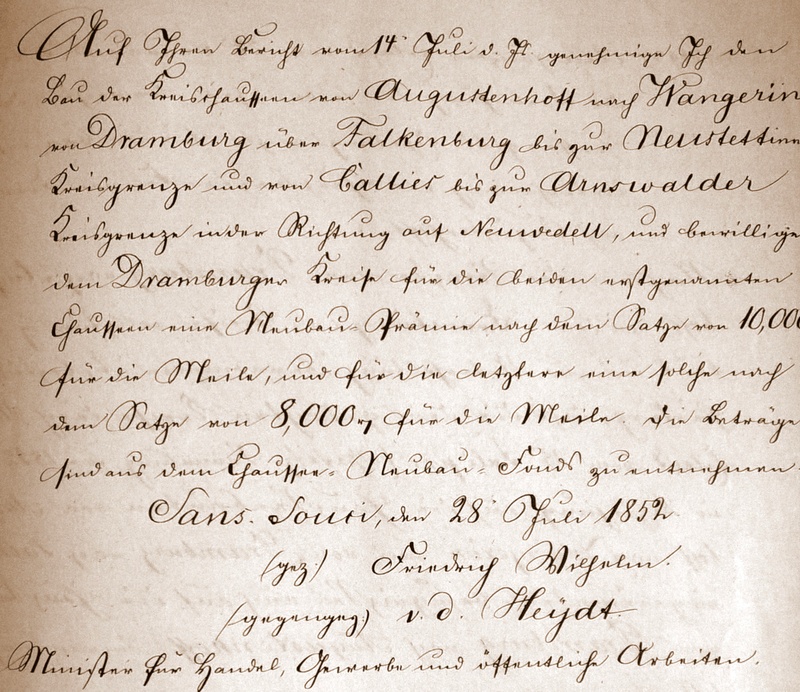 Auf Ihren Bericht vom 14 Juli d. Js. genehmige Ich den
Bau der Kreischausseen von Augustenhoff nach Wangerin
von Dramburg über Falkenburg bis zur Neustettine
Kreisgrenze und von Callies bis zur Arnswalder
Kreisgrenze in der Richtung auf Neuwedell, und bewillige
dem Dramburger Kreise für die beiden erstgenannten
Chausseen eine Neubau-Prämie nach dem Satze von 10,000
für die Meile, und für die letztere eine solche nach
dem Satze von 8,000 für die Meile. Die Beträge
sind aus dem Chaussee-Neubau-Fonds zu entnehmen.
Sans-Souci, den 28 Juli 1852.
(gez.) Friedrich Wilhelm.
(gegengez.) v. d. Heydt.
Minister für Handel, Gewerbe und öffentliche Arbeiten.